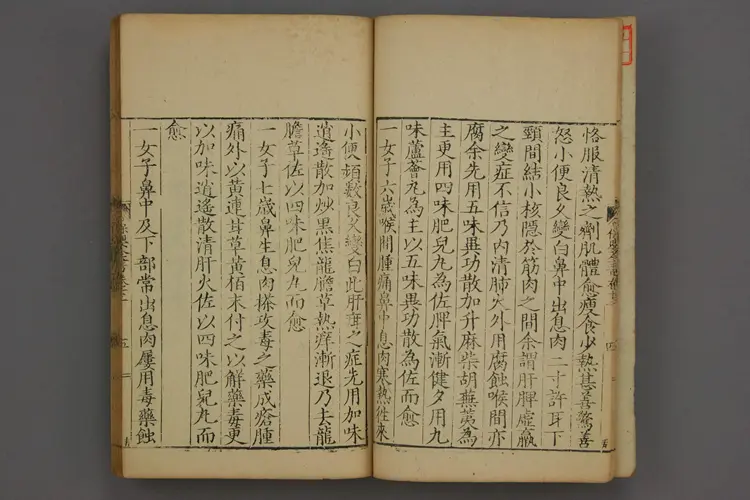 恪服清熱之劑肌體愈瘦食少熱甚善驚善
怒小便良久變白鼻中出息肉二寸許耳下
頸間結小核隱於筋肉之間余謂肝脾虛羸
之變症不信乃内清肺火外用腐蝕喉間亦
腐余先用五味異功散加升麻柴胡蕪荑為
主更用四味肥兒丸為佐脾氣漸健夕用九
味蘆薈丸為主以五味異功散為佐而愈
一女子六歲喉間腫痛鼻中息肉寒熱徃來
小便頻數良久變白此肝脾之症先用加味
逍遙散加炒黑焦龍膽草熱痒漸退乃去龍
膽草佐以四味肥兒丸而愈
一女子七歲鼻生息肉搽攻毒之藥成瘡腫
痛外以黃連甘草黃栢末付之以解藥毒更
以加味逍遙散清肝火佐以四味肥兒丸而
愈
一女子鼻中及下部常出息肉屢用毒藥蝕
四
五